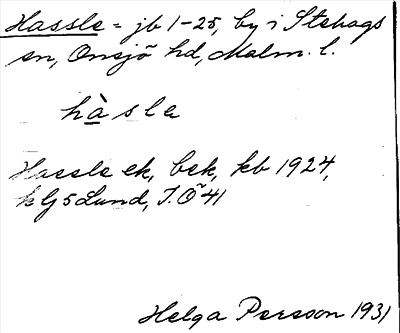 Hassle = jb 1-25, by i Stehags
sn, Onsjö hd, Malm. l.
hàsle
Hassle ek, bsk, kb 1924,
klj 5 Lund, I.Ö 41
Helga Persson 1931